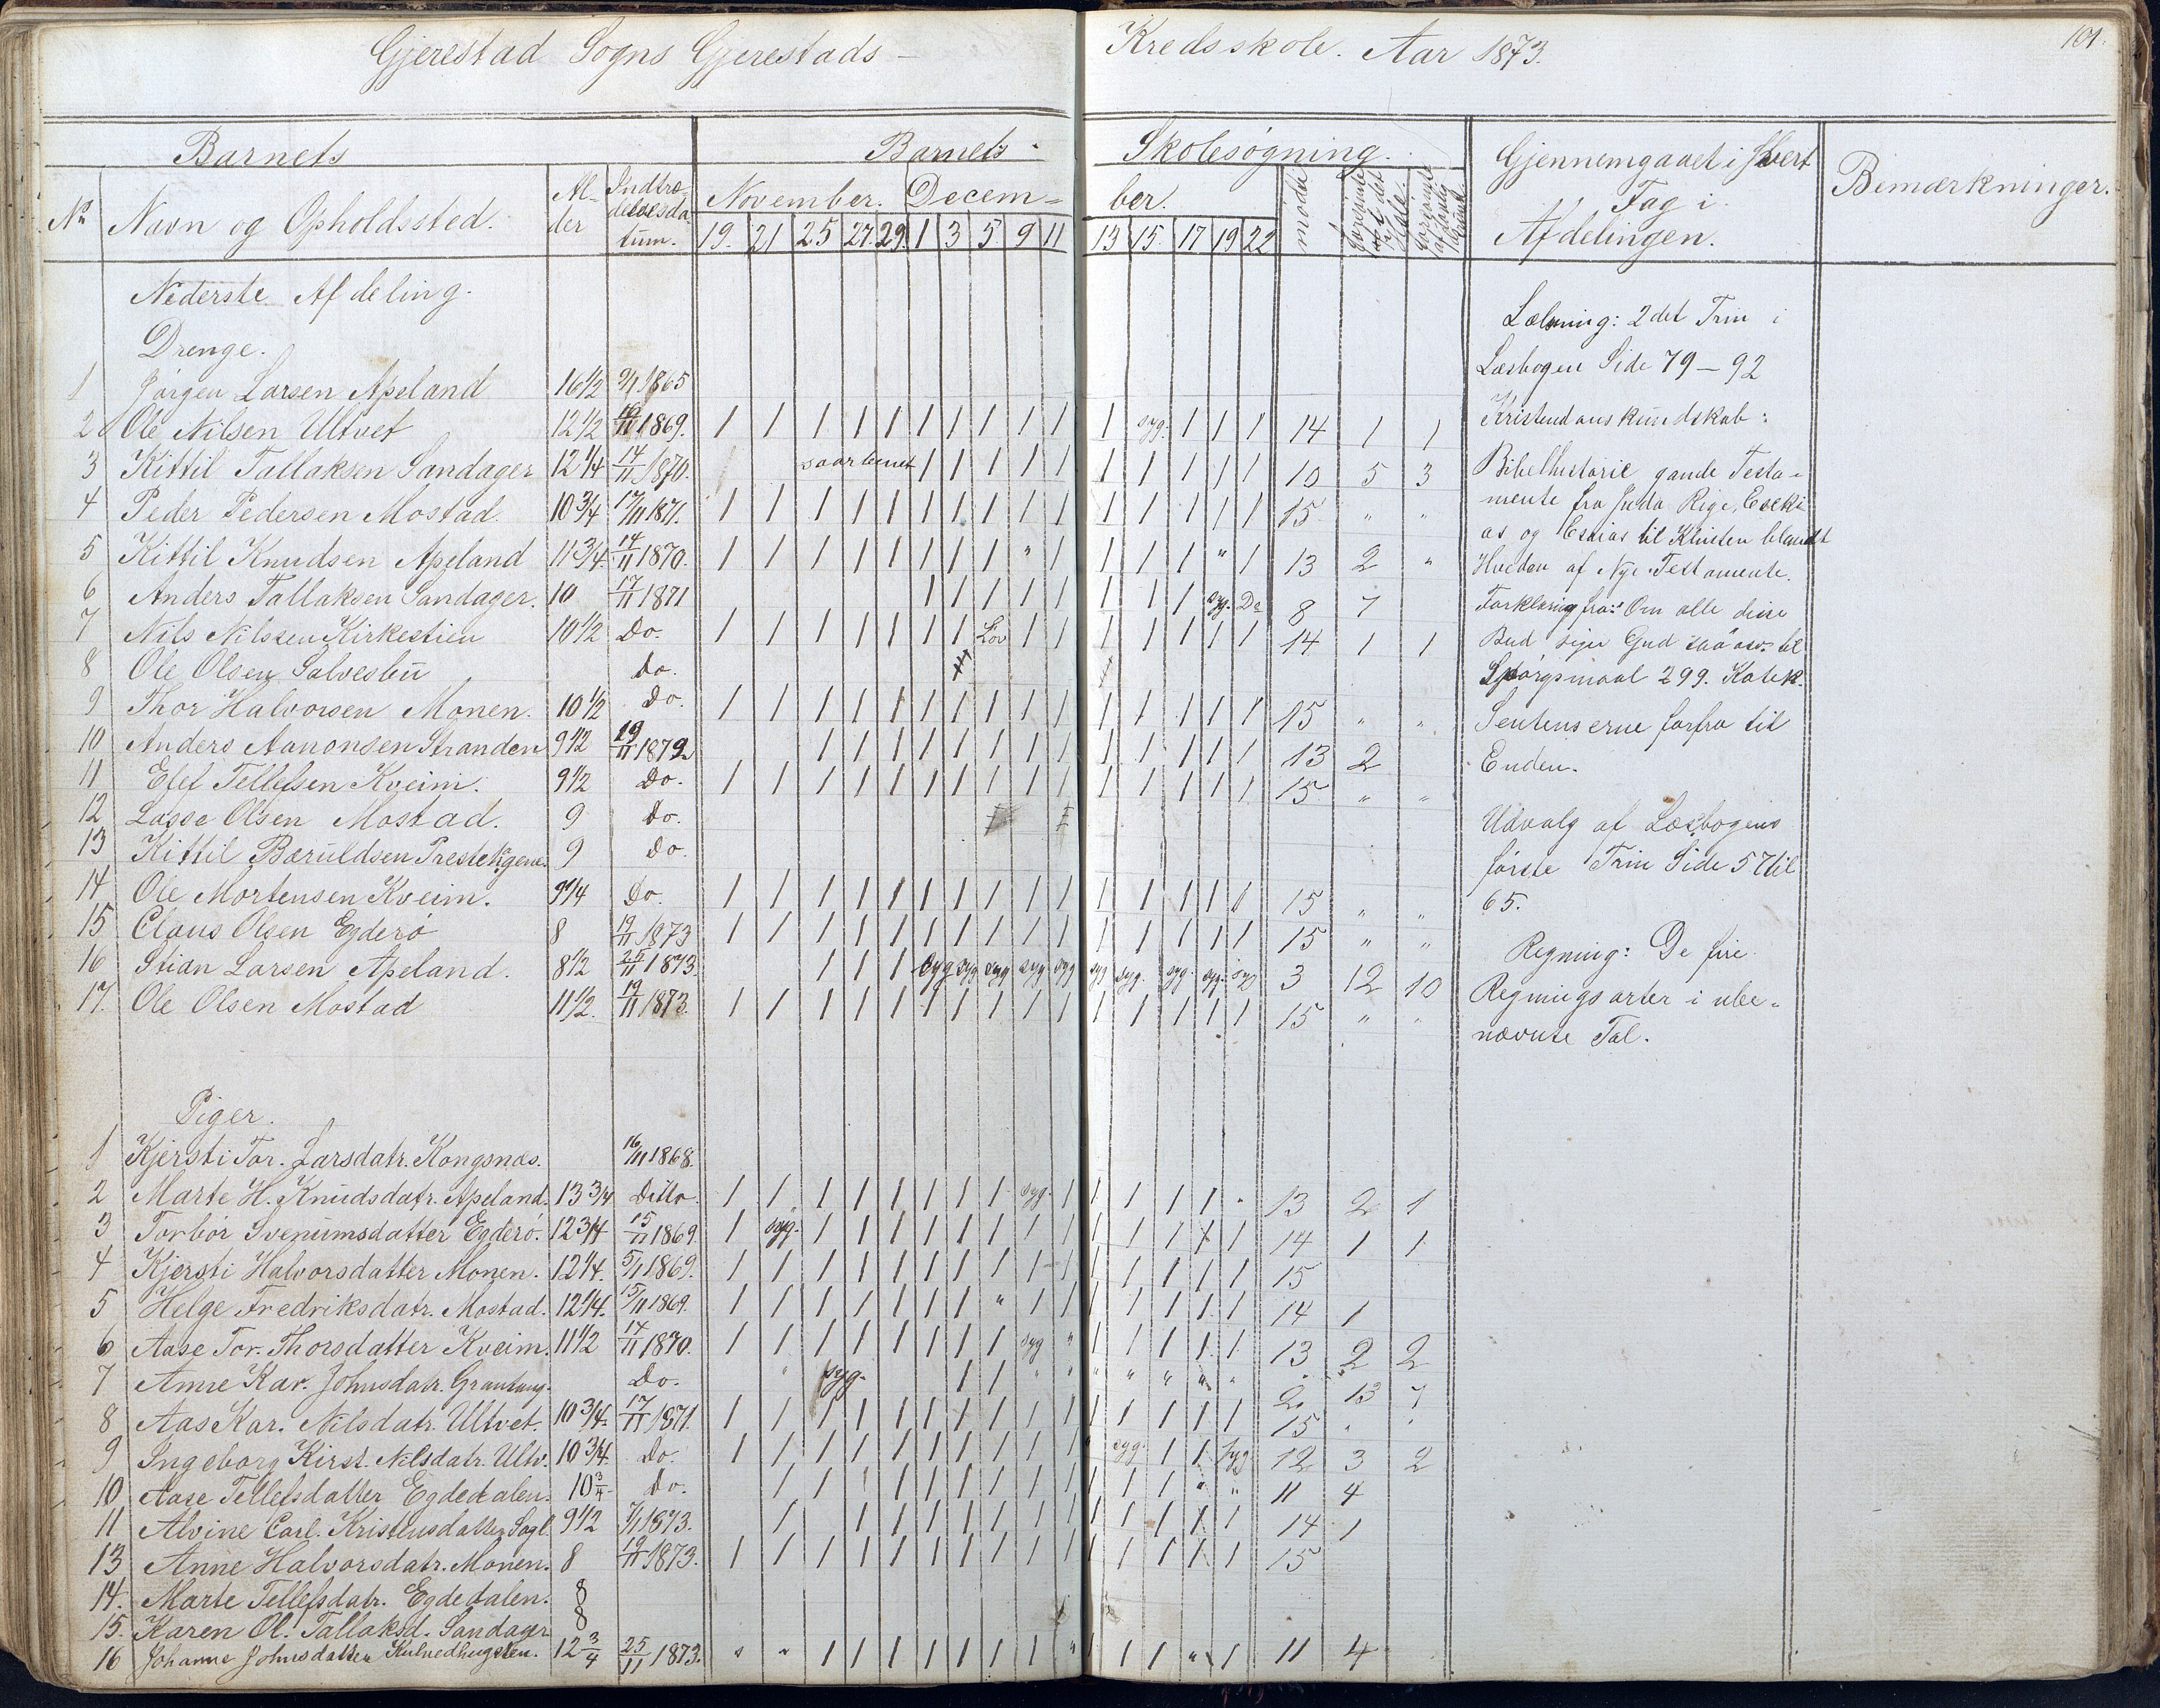 Gjerestad Sogns Gjerestads – Kredsskole. Aar 1873.
101.
Barnets
Barnets Skolesøgning.
Gjennemgaaet i hvert Fag i Afdelingen.
Bemærkninger.
No Navn og Opholdssted. Alder Indtrædelsesdatum. November. December. mødt
19. 21 25 27 29 1 3 5 9 11 13 15 17 19 22
Nederste Afdeling.
Drenge.
1 Jørgen Larsen Apeland 16 1/2 1865
2 Ole Nilsen Ultvet 12 1/2 1869. 1 1 1 1 1 1 1 1 1 1 1 syg. 1 1 1 14 1 1
3 Kittil Tallaksen Sandager 12 1/4 14/11 1870. 1 1 1 1 1 1 1 1 1 1 10 5 3
4 Peder Pedersen Mostad. 10 3/4 17/11 1871. 1 1 1 1 1 1 1 1 1 1 1 1 1 1 1 15 " "
5 Kittil Knudsen Apeland 11 3/4 14/11 1870. 1 1 1 1 1 1 1 1 " 1 1 1 1 " 1 13 2 "
6 Anders Tallaksen Sandager. 10 17/11 1871 1 1 1 1 1 1 1 1 syg. Do 8 7
7 Nils Nilssen Kirkestien 10 1/2 Do. 1 1 1 1 1 1 1 Lov 1 1 1 1 1 1 1 14 1 1
8 Ole Olsen Salvesbu Do.
9 Thor Halvorsen Monen. 10 1/2 Do. 1 1 1 1 1 1 1 1 1 1 1 1 1 1 1 15 " "
10 Anders Aanonsen Stranden 9 1/2 19/11 1872 1 1 1 1 1 1 1 1 1 1 1 1 1 13 2
11 Elef Tellefsen Kveim. 9 1/2 Do. 1 1 1 1 1 1 1 1 1 1 1 1 1 1 1 15 " "
12 Lasse Olsen Mostad. 9 Do.
13 Kittil Bæruldsen 9 Do.
14 Ole Mortensen Kveim. 9 1/4 Do. 1 1 1 1 1 1 1 1 1 1 1 1 1 1 1 15 " "
15 Claus Olsen Egderø 8 19/11 1873 1 1 1 1 1 1 1 1 1 1 1 1 1 1 1 15 " "
16 Stian Larsen Apeland. 8 1/2 25/11 1873. 1 1 1 syg syg syg syg syg syg syg. syg. syg. syg 3 12 10
17. Ole Olsen Mostad 11 1/2. 19/11 1873. 1 1 1 1 1 1 1 1 1 1 1 1 1 1 1 15 " "
Piger.
1 Kjersti Tor. Larsdatr. Kongsnæs. 16/11 1868.
2 Marte H. Knudsdatr. Apeland. 13 3/4 Ditto. 1 1 1 1 1 1 1 1 syg. 1 1 1 1 1 " 13 2 1
3 Torbør Svenumsdatter Egderø. 12 3/4 15/11 1869. 1 syg. 1 1 1 1 1 1 1 1 1 1 1 1 1 14 1 1
4 Kjersti Halvorsdatter Monen. 12 1/4. 1869. 1 1 1 1 1 1 1 1 1 1 1 1 1 1 1 15
5 Helge Fredriksdatr. Mostad. 12 1/4. 15/11 1869. 1 1 1 1 1 1 1 " 1 1 1 1 1 1 1 14 1
6 Aase Tor. Thorsdatter Kveim. 11 1/2 14/11 1870. 1 1 1 1 1 1 1 1 syg " 1 1 1 1 1 13 2 2
7 Anne Kar. Johnsdatr. Do. " syg. 1 1 " " " " " " " 2 13 7
8 Aas Kar. Nilsdatr. Ultvet. 10 3/4. 17/11 1871. 1 1 1 1 1 1 1 1 1 1 1 1 1 1 1 15 " "
9 Ingeborg Kirst. Nilsdatr. Ultv. 10 3/4 Do. 1 1 1 1 1 1 1 1 1 1 " syg. 1 1 syg 12 3 2
10 Aase Tellefsdatter Egdedalen. 10 3/4 Do. 1 1 1 1 1 1 1 1 1 1 1 1 " " 11 4
11 Alvine Carl. Kristensdatter Sagl. 9 1/2 1873. 1 1 1 1 1 1 1 1 1 1 1 1 1 14 1
13 Anne Halvorsdatr. Monen. 8 19/11 1873. 1 1 1 1 1 1 1 1 1 1 1 1 1 1 1 15
14. Marte Tellefsdatr. Egdedalen. 8
15. Karen Ol. Tallaksd. Sandager 8
16 Johanne Johnsdatter 12 3/4 25/11 1873. " " 1 1 1 1 1 1 1 " 1 1 1 " 1 11 4
Læsning: 2det Trin i
Læsbogen Side 79 – 92
Kristendomskundskab:
Bibelhistorie gamle Testa-
mente fra Juda Rige, Eseki
as og Esaias til Kristen blandt
af Nye Testamente.
Forklaring fra: Om alle disse
Bud siger Gud saa osv. til
Spørgsmaal 299. Katek.
Sentenserne forfra til
Enden.
Udvalg af Læsbogens
første Trin Side 57 til
65.
Regning: De fire
Regningsarter i ube-
nævnte Tal.